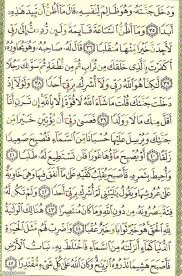 وَدَخَلَ جَنَّتَهُۥ وَهُوَ ظَالِمٌ لِّنَفْسِهِۦ قَالَ مَآ أَظُنُّ أَن تَبِيدَ هَٰذِهِۦٓ
أَبَدًا ٣٥ وَمَآ أَظُنُّ ٱلسَّاعَةَ قَآئِمَةً وَلَئِن رُّدِدتُّ إِلَىٰ رَبِّى
لَأَجِدَنَّ خَيْرًا مِّنْهَا مُنقَلَبًا ٣٦ قَالَ لَهُۥ صَاحِبُهُۥ وَهُوَ يُحَاوِرُهُۥٓ
أَكَفَرْتَ بِٱلَّذِى خَلَقَكَ مِن تُرَابٍ ثُمَّ مِن نُّطْفَةٍ ثُمَّ سَوَّىٰكَ رَجُلًا
٣٧ لَّٰكِنَّا۠ هُوَ ٱللَّهُ رَبِّى وَلَآ أُشْرِكُ بِرَبِّىٓ أَحَدًا ٣٨ وَلَوْلَآ إِذْ
دَخَلْتَ جَنَّتَكَ قُلْتَ مَا شَآءَ ٱللَّهُ لَا قُوَّةَ إِلَّا بِٱللَّهِ إِن تَرَنِ أَنَا۠
أَقَلَّ مِنكَ مَالًا وَوَلَدًا ٣٩ فَعَسَىٰ رَبِّىٓ أَن يُؤْتِيَنِ خَيْرًا مِّن
جَنَّتِكَ وَيُرْسِلَ عَلَيْهَا حُسْبَانًا مِّنَ ٱلسَّمَآءِ فَتُصْبِحَ صَعِيدًا زَلَقًا
٤٠ أَوْ يُصْبِحَ مَآؤُهَا غَوْرًا فَلَن تَسْتَطِيعَ لَهُۥ طَلَبًا ٤١
وَأُحِيطَ بِثَمَرِهِۦ فَأَصْبَحَ يُقَلِّبُ كَفَّيْهِ عَلَىٰ مَآ أَنفَقَ فِيهَا وَهِىَ خَاوِيَةٌ
عَلَىٰ عُرُوشِهَا وَيَقُولُ يَٰلَيْتَنِى لَمْ أُشْرِكْ بِرَبِّىٓ أَحَدًا ٤٢ وَلَمْ تَكُن لَّهُۥ
فِئَةٌ يَنصُرُونَهُۥ مِن دُونِ ٱللَّهِ وَمَا كَانَ مُنتَصِرًا ٤٣ هُنَالِكَ ٱلْوَلَٰيَةُ
لِلَّهِ ٱلْحَقِّ هُوَ خَيْرٌ ثَوَابًا وَخَيْرٌ عُقْبًا ٤٤ وَٱضْرِبْ لَهُم مَّثَلَ ٱلْحَيَوٰةِ
ٱلدُّنْيَا كَمَآءٍ أَنزَلْنَٰهُ مِنَ ٱلسَّمَآءِ فَٱخْتَلَطَ بِهِۦ نَبَاتُ ٱلْأَرْضِ
فَأَصْبَحَ هَشِيمًا تَذْرُوهُ ٱلرِّيَٰحُ وَكَانَ ٱللَّهُ عَلَىٰ كُلِّ شَىْءٍ مُّقْتَدِرًا ٤٥